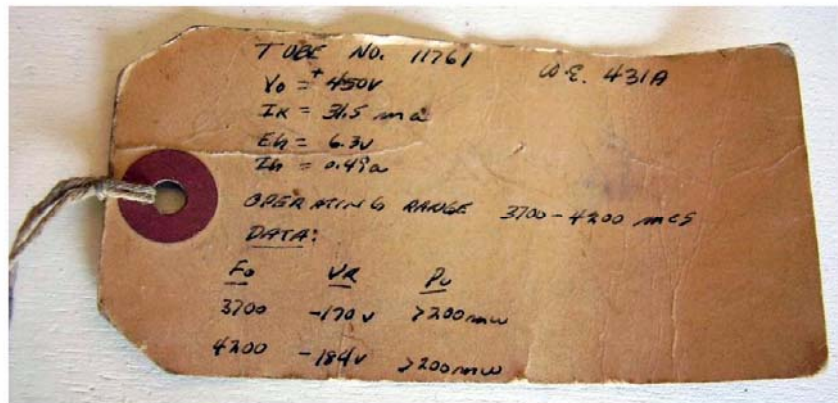 TUBE NO. 11761
W.E. 431A
Vo = + 450V
IK = 31.5 ma
Eh = 6.3v
Ih = 0.49a
OPERATING RANGE 3700-4200 mcs
DATA:
Fo VR Po
3700 -170 v >200mw
4200 -184v >200mw